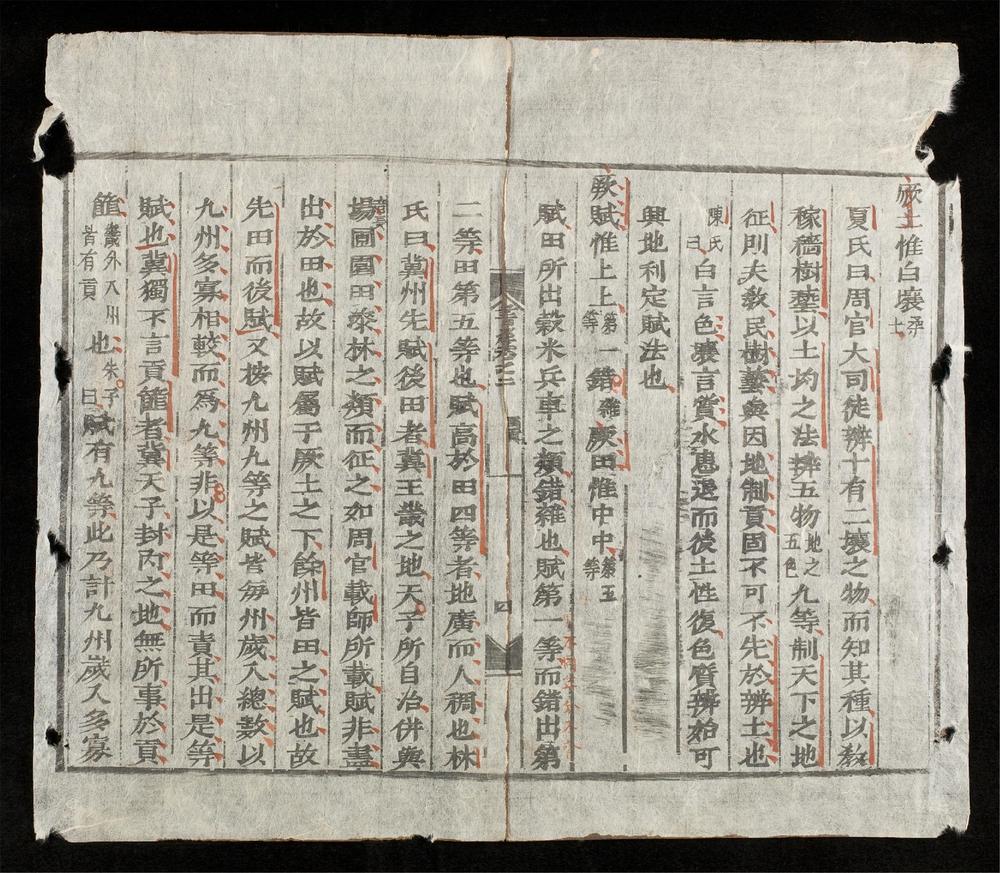 厥土惟白壤
夏氏曰周官大司徒辨十有二壤之物而知其種以教
稼穡樹藝以土均之法辨五物地之五色九等制天下之地
征則夫教民樹藝與因地制貢固不可不先於辨土也
陳氏曰白言色壤言質水患退而後土性復色質辨始可
興地利定賦法也
厥賦惟上上第一等錯雜厥田惟中中第五等
賦田所出穀米兵車之類錯雜也賦第一等而錯出第
二等田第五等也賦高於田四等者地廣而人稠也林
氏曰冀州先賦後田者冀王畿之地天子所自治併與
場圃園田漆林之類而征之如周官載師所載賦非盡
出於田也故以賦屬于厥土之下餘州皆田之賦也故
先田而後賦又按九州九等之賦皆每州歲入總數以
九州多寡相較而為九等非以是等田而責其出是等
賦也冀獨不言貢篚者冀天子封內之地無所事於貢
篚畿外八州皆有貢也朱子曰賦有九等此乃計九州歲入多寡
四